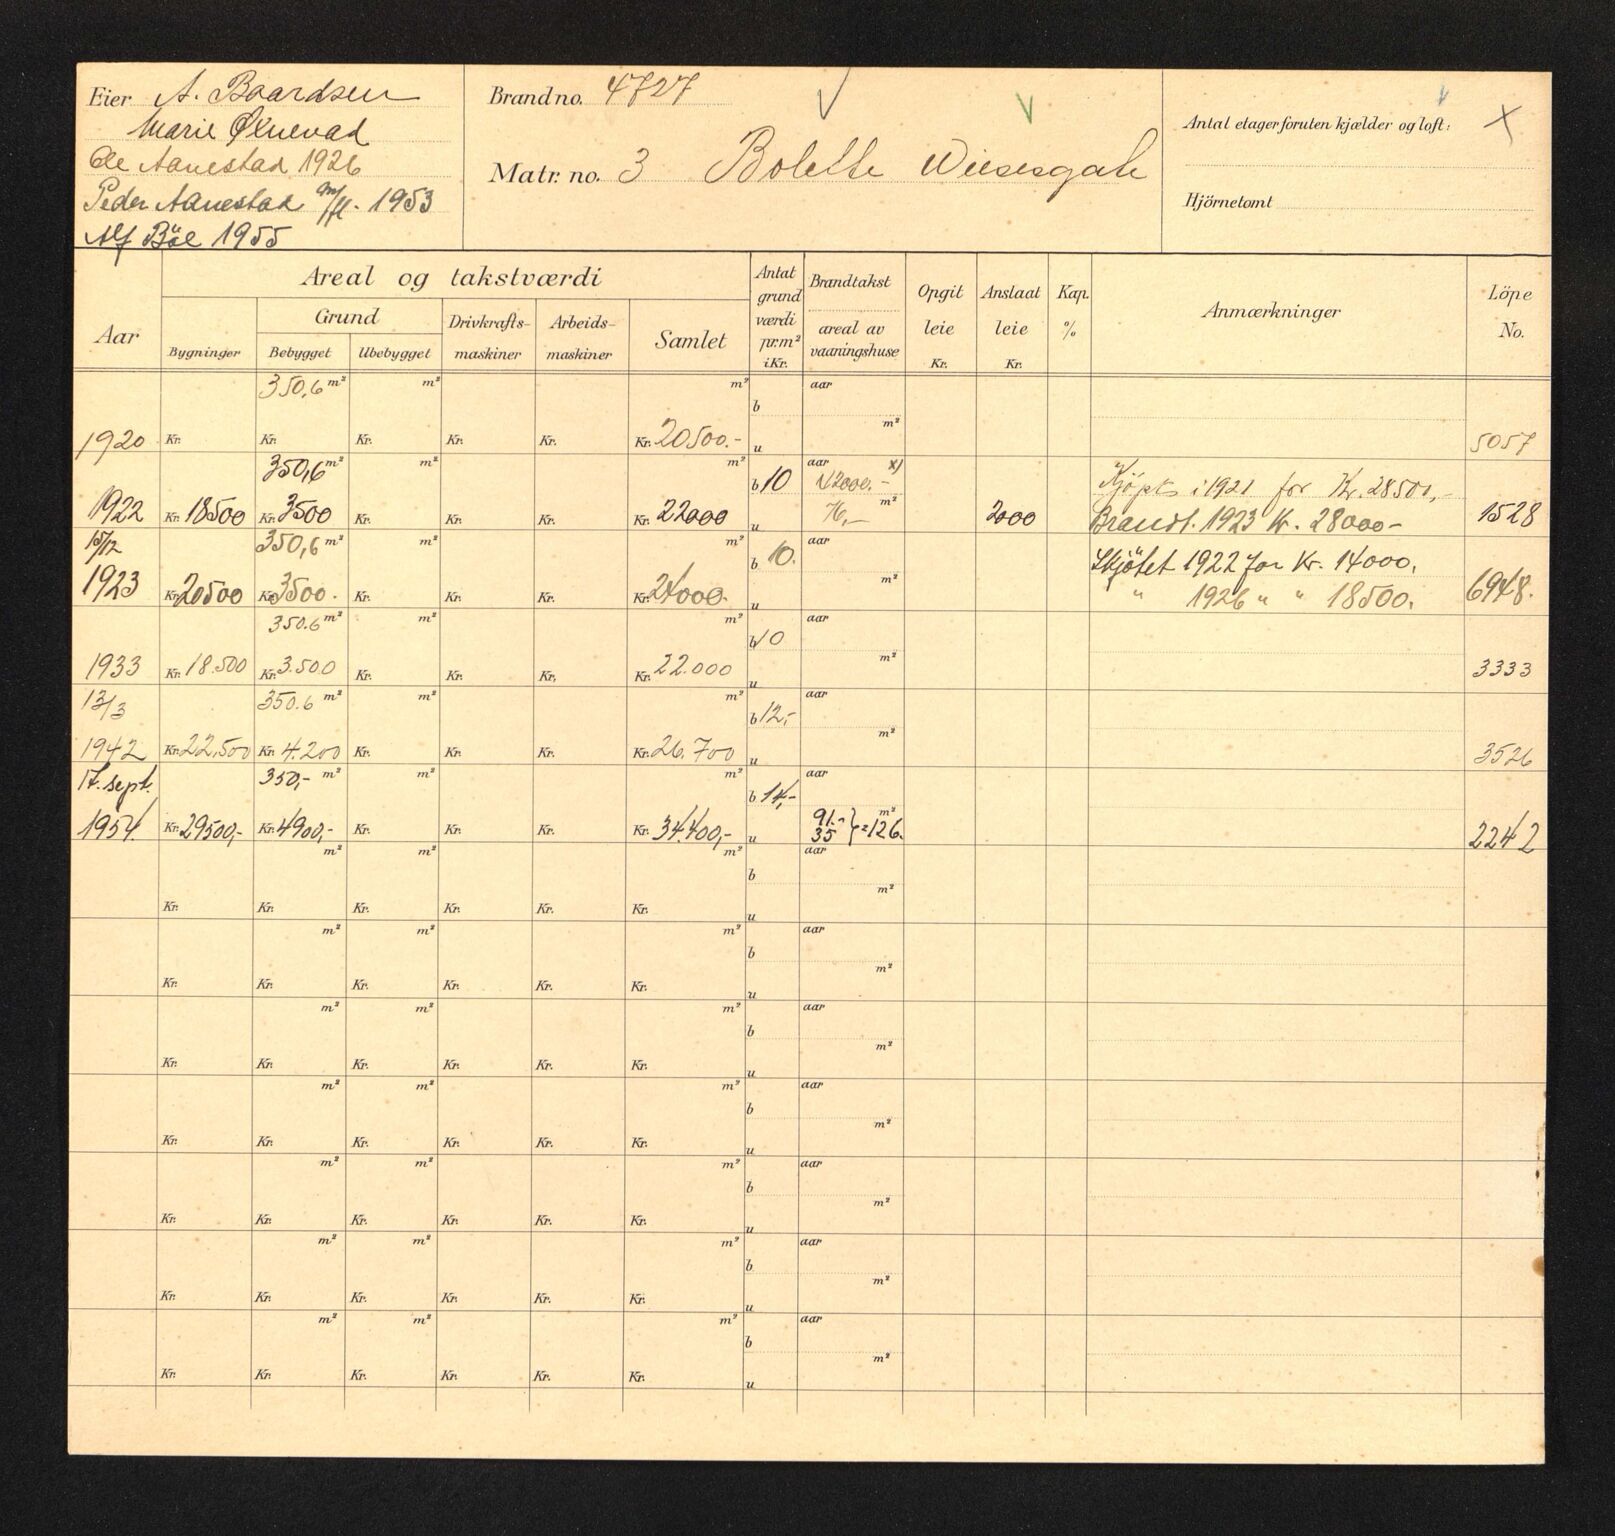 Eier A. Baardsen
Marie Øknevad
Ole Aanestad 1926
Peder Aanestad m/fl. 1953
Alf Böe 1955
Brand no. 4727
Matr. no. 3 Bolette Wiesesgate
Antal etager foruten kjælder og loft: X
Hjörnetomt
Aar
Areal og takstværdi
Bygninger
Grund
Bebygget
Ubebygget
Drivkrafts-
maskiner
Arbeids-
maskiner
Samlet
Antat
grund
værdi
pr.m²
i Kr.
Brandtakst
areal av
vaaningshuse
Opgit
leie
Kr.
Anslaat
leie
Kr.
Kap.
%
Anmærkninger
Löpe
No.
350,6 m² m² m² b aar
1920 Kr. Kr. Kr. Kr. Kr. Kr. 20500.- u m² 5057
350,6 m² m² m² b 10 aar x)
12000.- Kjøpts i 1921 for Kr. 28500,-
1922 Kr. 18500 Kr. 3500 Kr. Kr. Kr. Kr. 22000 u 76,- m² 2000 Brandt. 1923 Kr. 28000- 1528
15/12 350,6 m² m² m² b 10. aar Skjötet 1922 for Kr. 14000.
1923 Kr. 20500 Kr. 3500. Kr. Kr. Kr. Kr. 24000.- u m² " 1926 " " 18500. 6948.
350.6 m² m² m² b 10 aar
1933 Kr. 18.500 Kr. 3.500 Kr. Kr. Kr. Kr. 22.000 u m² 3333
13/3 350.6 m² m² m² b 12,- aar
1942 Kr. 22.500 Kr. 4.200 Kr. Kr. Kr. Kr. 26.700 u m² 3526
17. sept. 350,- m² m² m² b 14,- aar
1954. Kr. 29500,- Kr. 4900,- Kr. Kr. Kr. Kr. 34.400,- u 91.- 35 } = 126. m² 2242
m² m² m² b aar
Kr. Kr. Kr. Kr. Kr. Kr. u m²
m² m² m² b aar
Kr. Kr. Kr. Kr. Kr. Kr. u m²
m² m² m² b aar
Kr. Kr. Kr. Kr. Kr. Kr. u m²
m² m² m² b aar
Kr. Kr. Kr. Kr. Kr. Kr. u m²
m² m² m² b aar
Kr. Kr. Kr. Kr. Kr. Kr. u m²
m² m² m² b aar
Kr. Kr. Kr. Kr. Kr. Kr. u m²
m² m² m² b aar
Kr. Kr. Kr. Kr. Kr. Kr. u m²